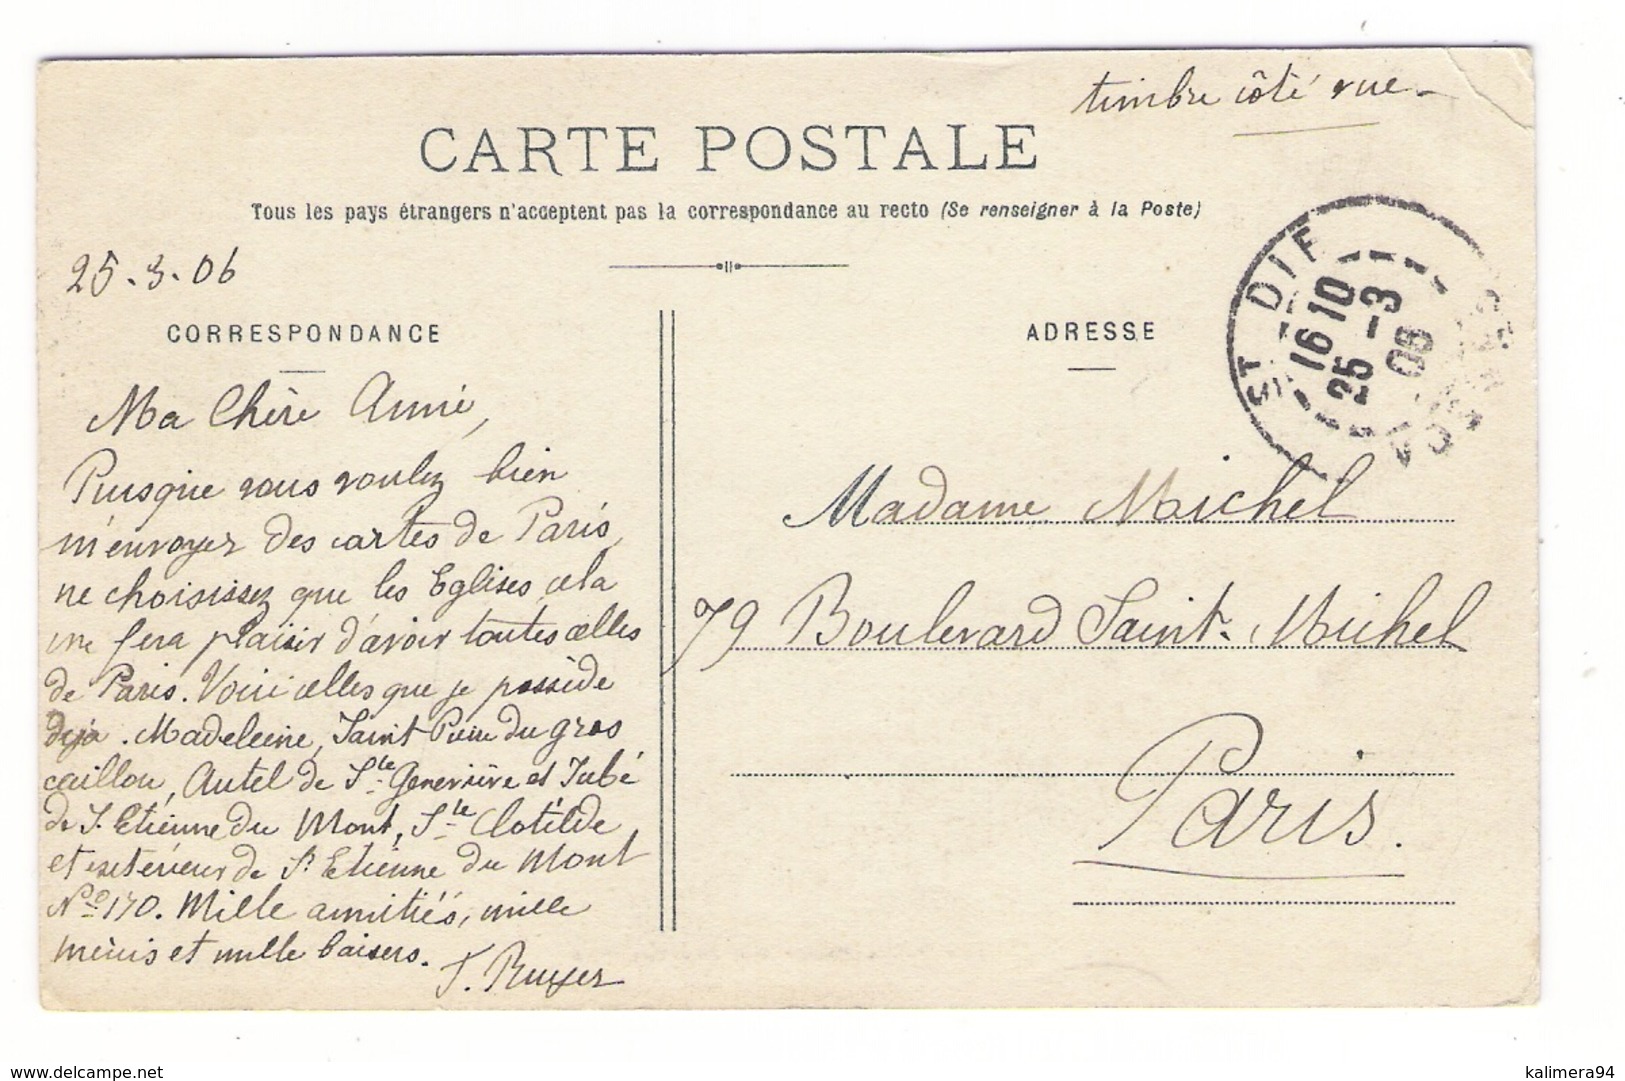 timbre côté vue.
CARTE POSTALE
Tous les pays étrangers n'acceptent pas la correspondance au recto (Se renseigner à la Poste)
25.3.06
CORRESPONDANCE
Ma Chère Amie,
Puisque vous voulez bien
m'envoyer des cartes de Paris,
ne choisissez que les Eglises cela
me fera plaisir d'avoir toutes celles
de Paris. Voici celles que je possède
déjà. Madeleine, Saint Pierre du gros
caillou, Autel de Ste Geneviève et Jubé
de S. Etienne du Mont, Ste Clotilde
et extérieur de St Etienne du Mont
No 170. Mille amitiés, mille
mercis et mille baisers.
ADRESSE
ST DIE
16 10
25 -3
06
Madame Michel
79 Boulevard Saint-Michel
Paris.
www.delcampe.net
kalimera94